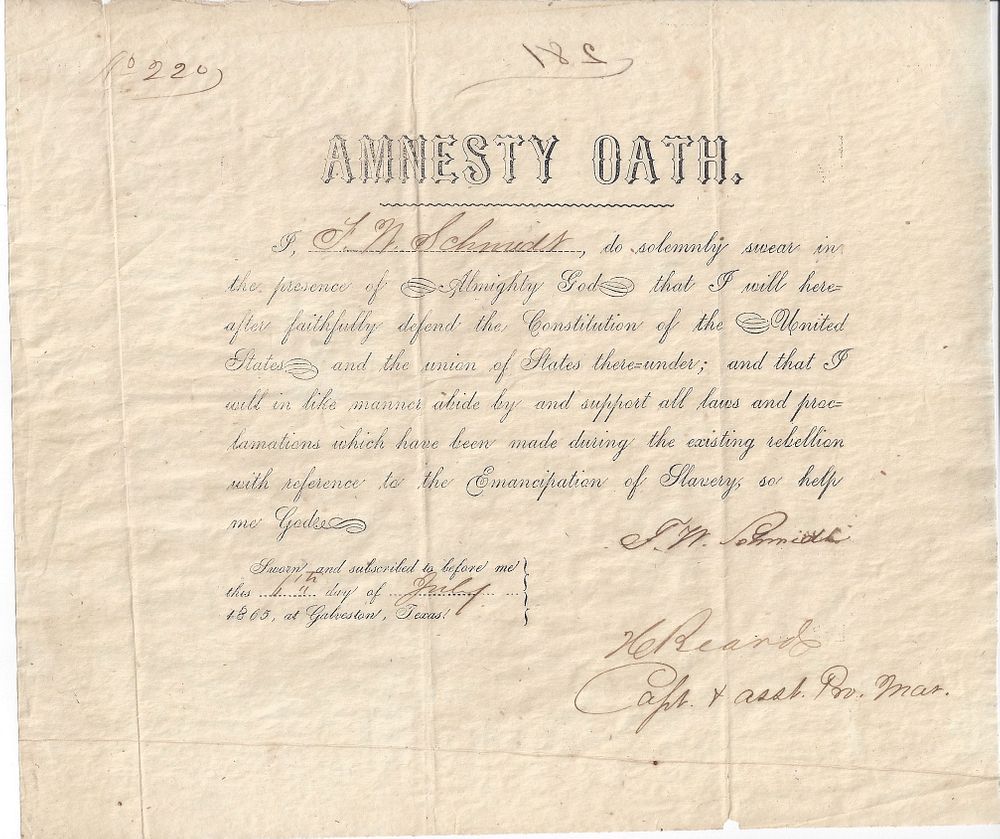 No 220
182
AMNESTY OATH.
I, F. W. Schmidt, do solemnly swear in
the presence of Almighty God that I will here=
after faithfully defend the Constitution of the United
States and the union of States there=under; and that I
will in like manner abide by and support all laws and proc=
lamations which have been made during the existing rebellion
with reference to the Emancipation of Slavery, so help
me God.
F. W. Schmidt
Sworn and subscribed to before me
this day of July
1865, at Galveston, Texas.
Capt. & asst. Pro. Mar.